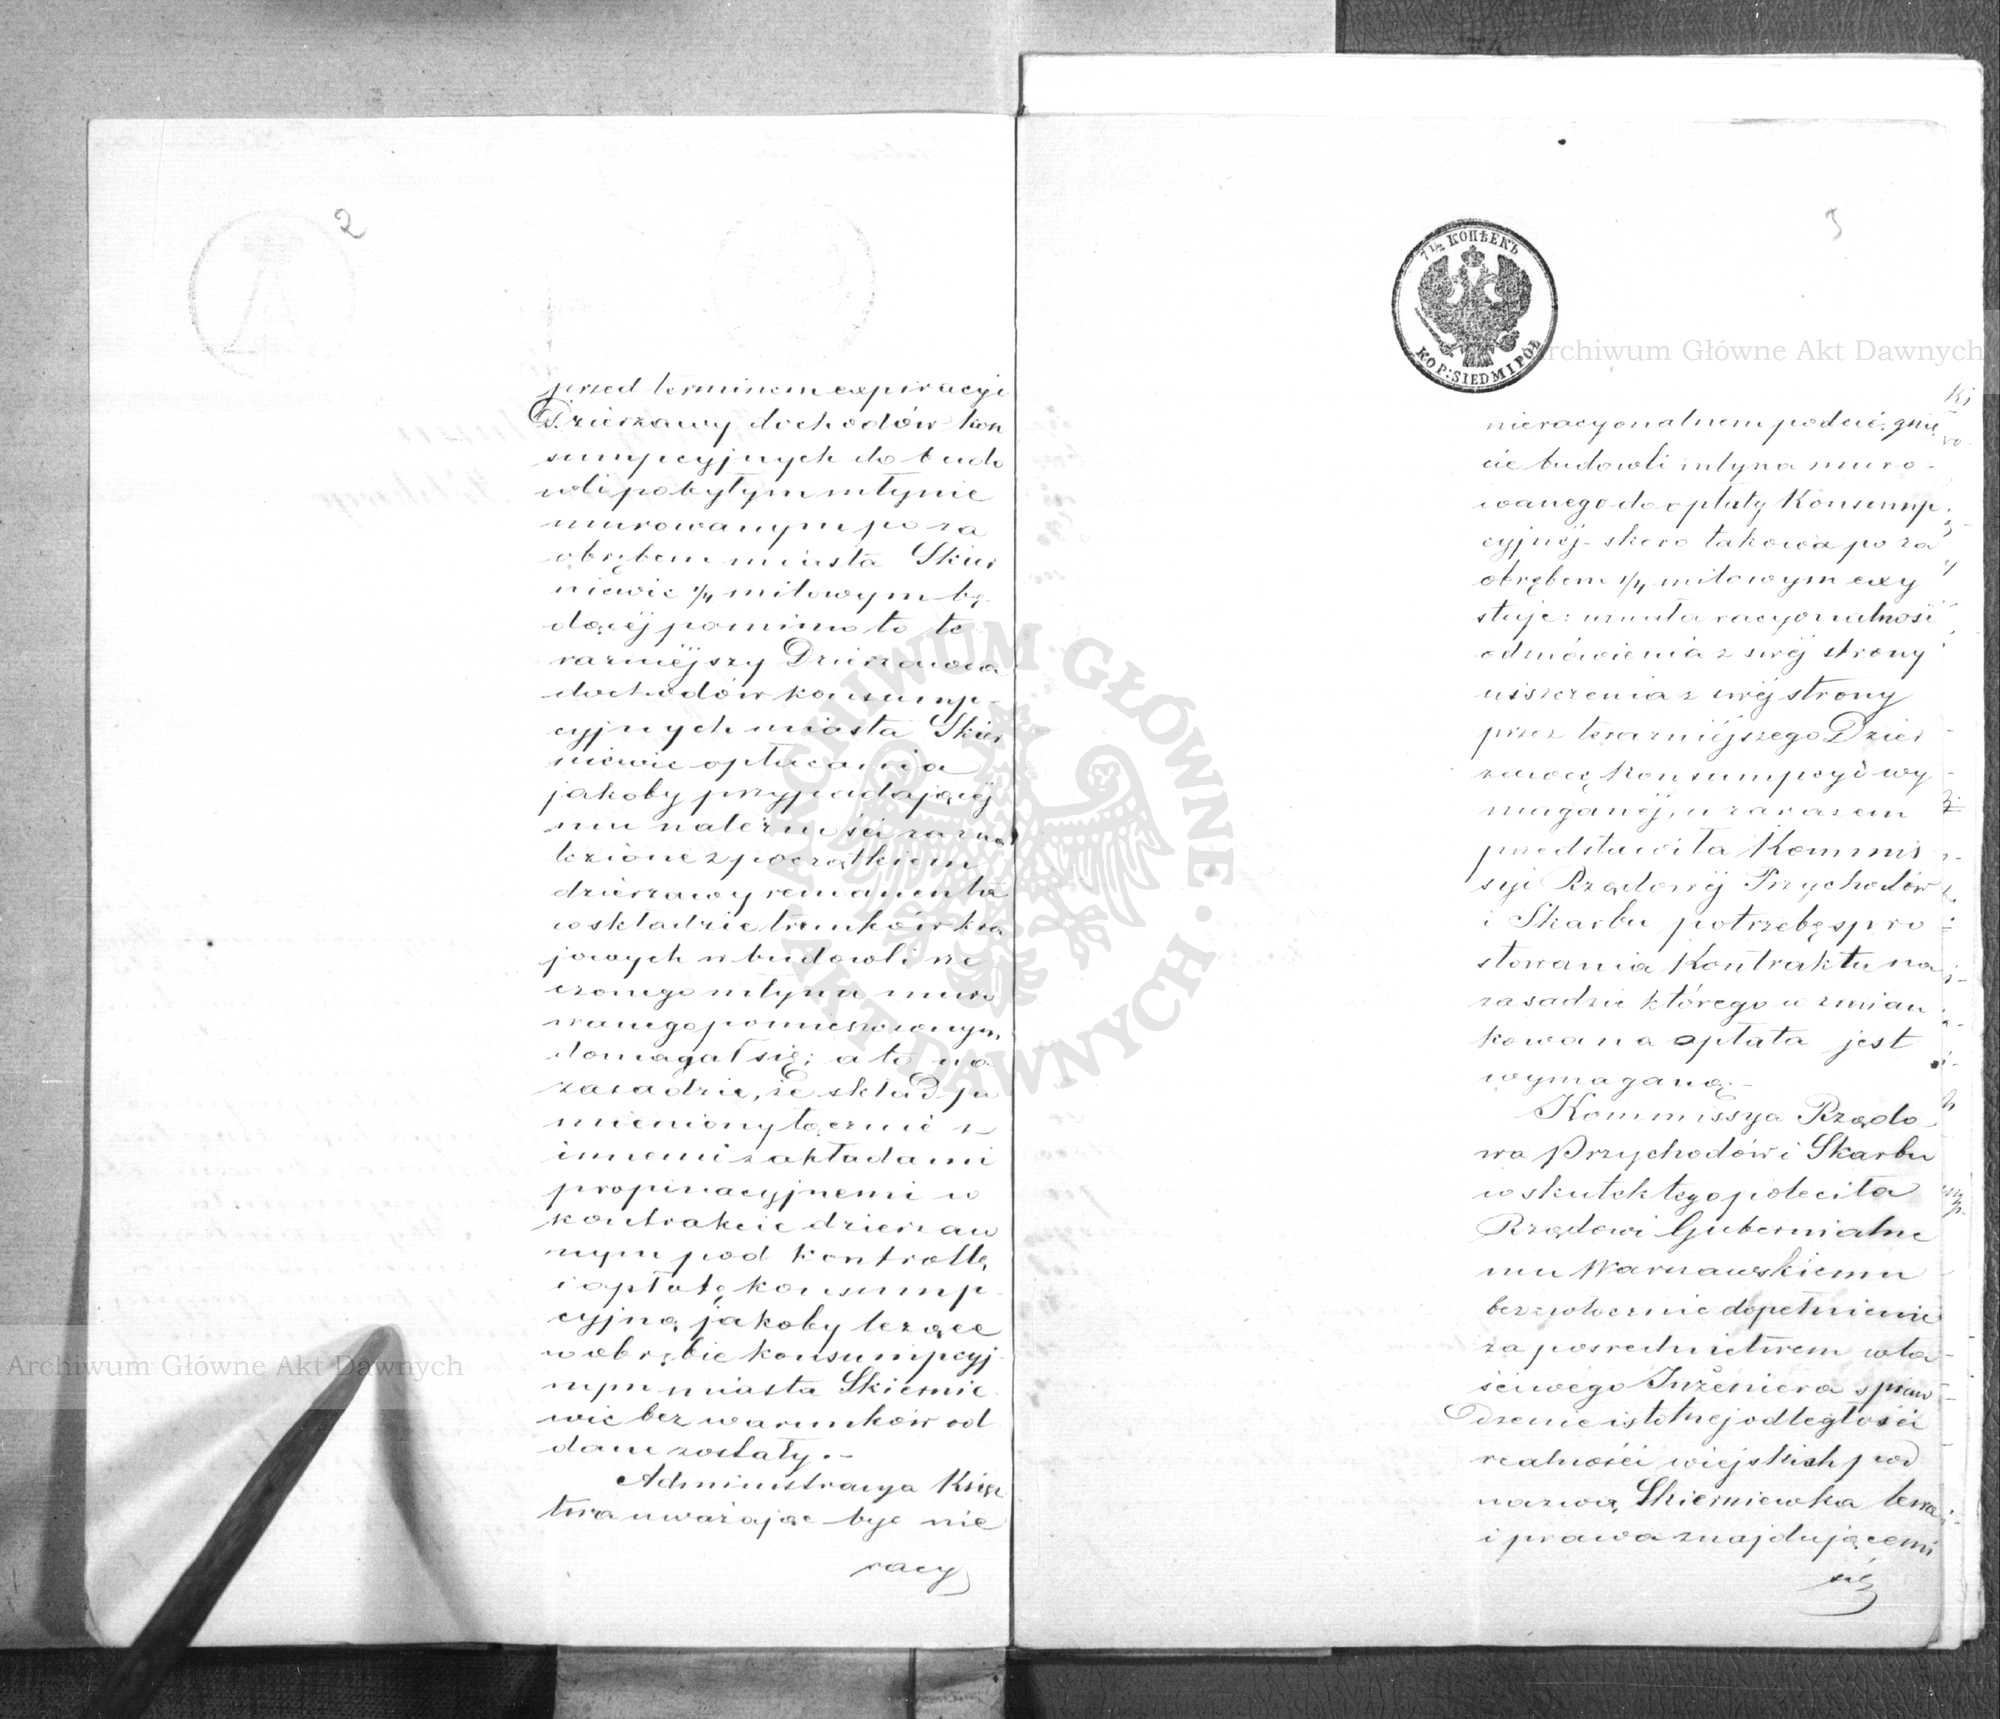 2
przed terminem expiracyi
Dzierzawy dochodów kon
sumpcyjnych do budo
wli po byłym młynie
murowanym po za
obrębem miasta Skier
niewic 1/4 milowym bę-
dącej pomimo to te
razniejszy Dzierzawca
dochodów konsump-
cyjnych miasta Skier
niewic opłacania
jakoby przypadającej
mu należności za zna
lezione z początkiem
dzierzawy remanenta
w składzie trunków kra
jowych w budowli rze
czonego młyna muro
wanego pomieszczonym,
domagał się; a to na
zasadzie, że skład po
mieniony łącznie z
innemi zakładami
propinacyjnemi w
kontrakcie dzierzaw
nym pod kontrollę
i opłatę konsump-
cyjną jakoby leżące
w obrębie konsumpcyj-
nym miasta Skiernie-
wic bez warunków od
dane zostały.-
Administracya Księz
twa uważając byc nie
racy
3
7 1/2 КОПѢЕКЪ
KOP: SIEDM I PÓŁ
nieracyonalnem podcią gnię
cie budowli młyna muro-
wanego do opłaty Konsump
cyjnej- skoro takowa po za
obrębem 1/4 milowym exy
stuje: uznała racyonalność
odmówienia z swej strony
uiszczenia z swej strony
przez terazniejszego Dzier
zawcę konsumpcyi wy-
maganej, a zarazem
przedstawiła Kommis
syi Rządowej Przychodów
i Skarbu potrzebę spro
stowania Kontraktu na
zasadzie którego wzmian
kowana opłata jest
wymaganą.-
Kommissya Rządo-
wa Przychodów i Skarbu
w skutek tego poleciła
Rządowi Gubernialne
mu Warszawskiemu
bezzwłocznie dopełnienie
za posrednictwem wła-
ściwego Inżeniera spraw
dzenie istotnej odległości
realności wiejskich pod
nazwą Skierniewka lewa
i prawa znajdującemi
się
Archiwum Główne Akt Dawnych
Archiwum Główne Akt Dawnych
ARCHIWUM GŁÓWNE
AKT DAWNYCH